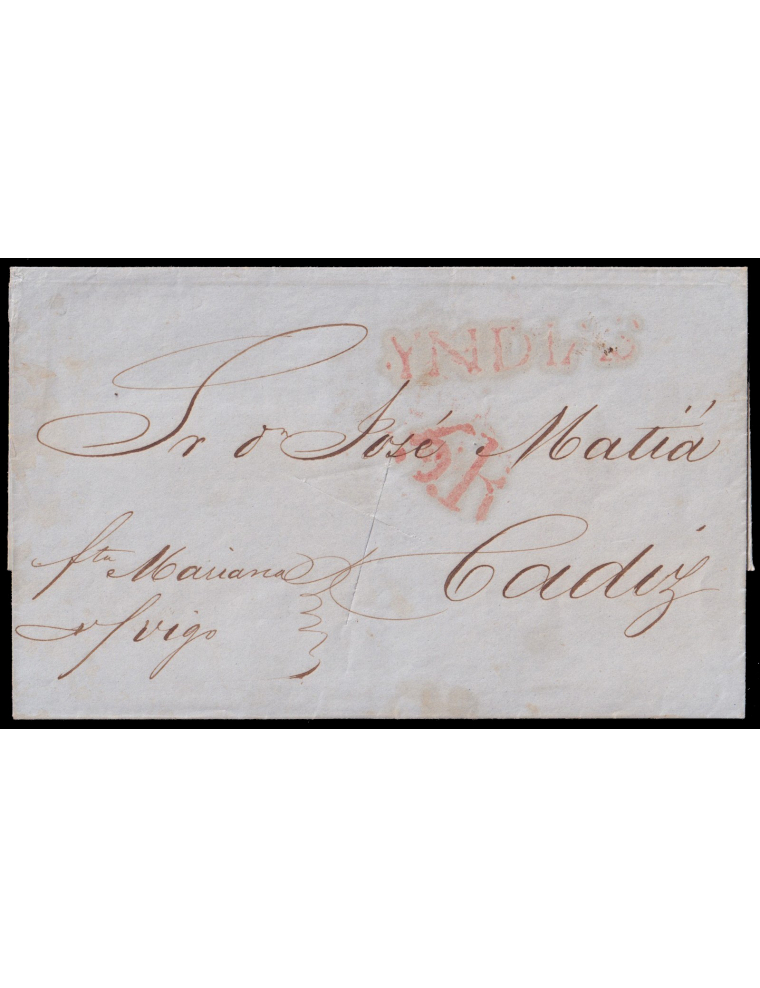 YNDIAS
Sr dn José Matiá
Cadiz
fta Mariana
vigo